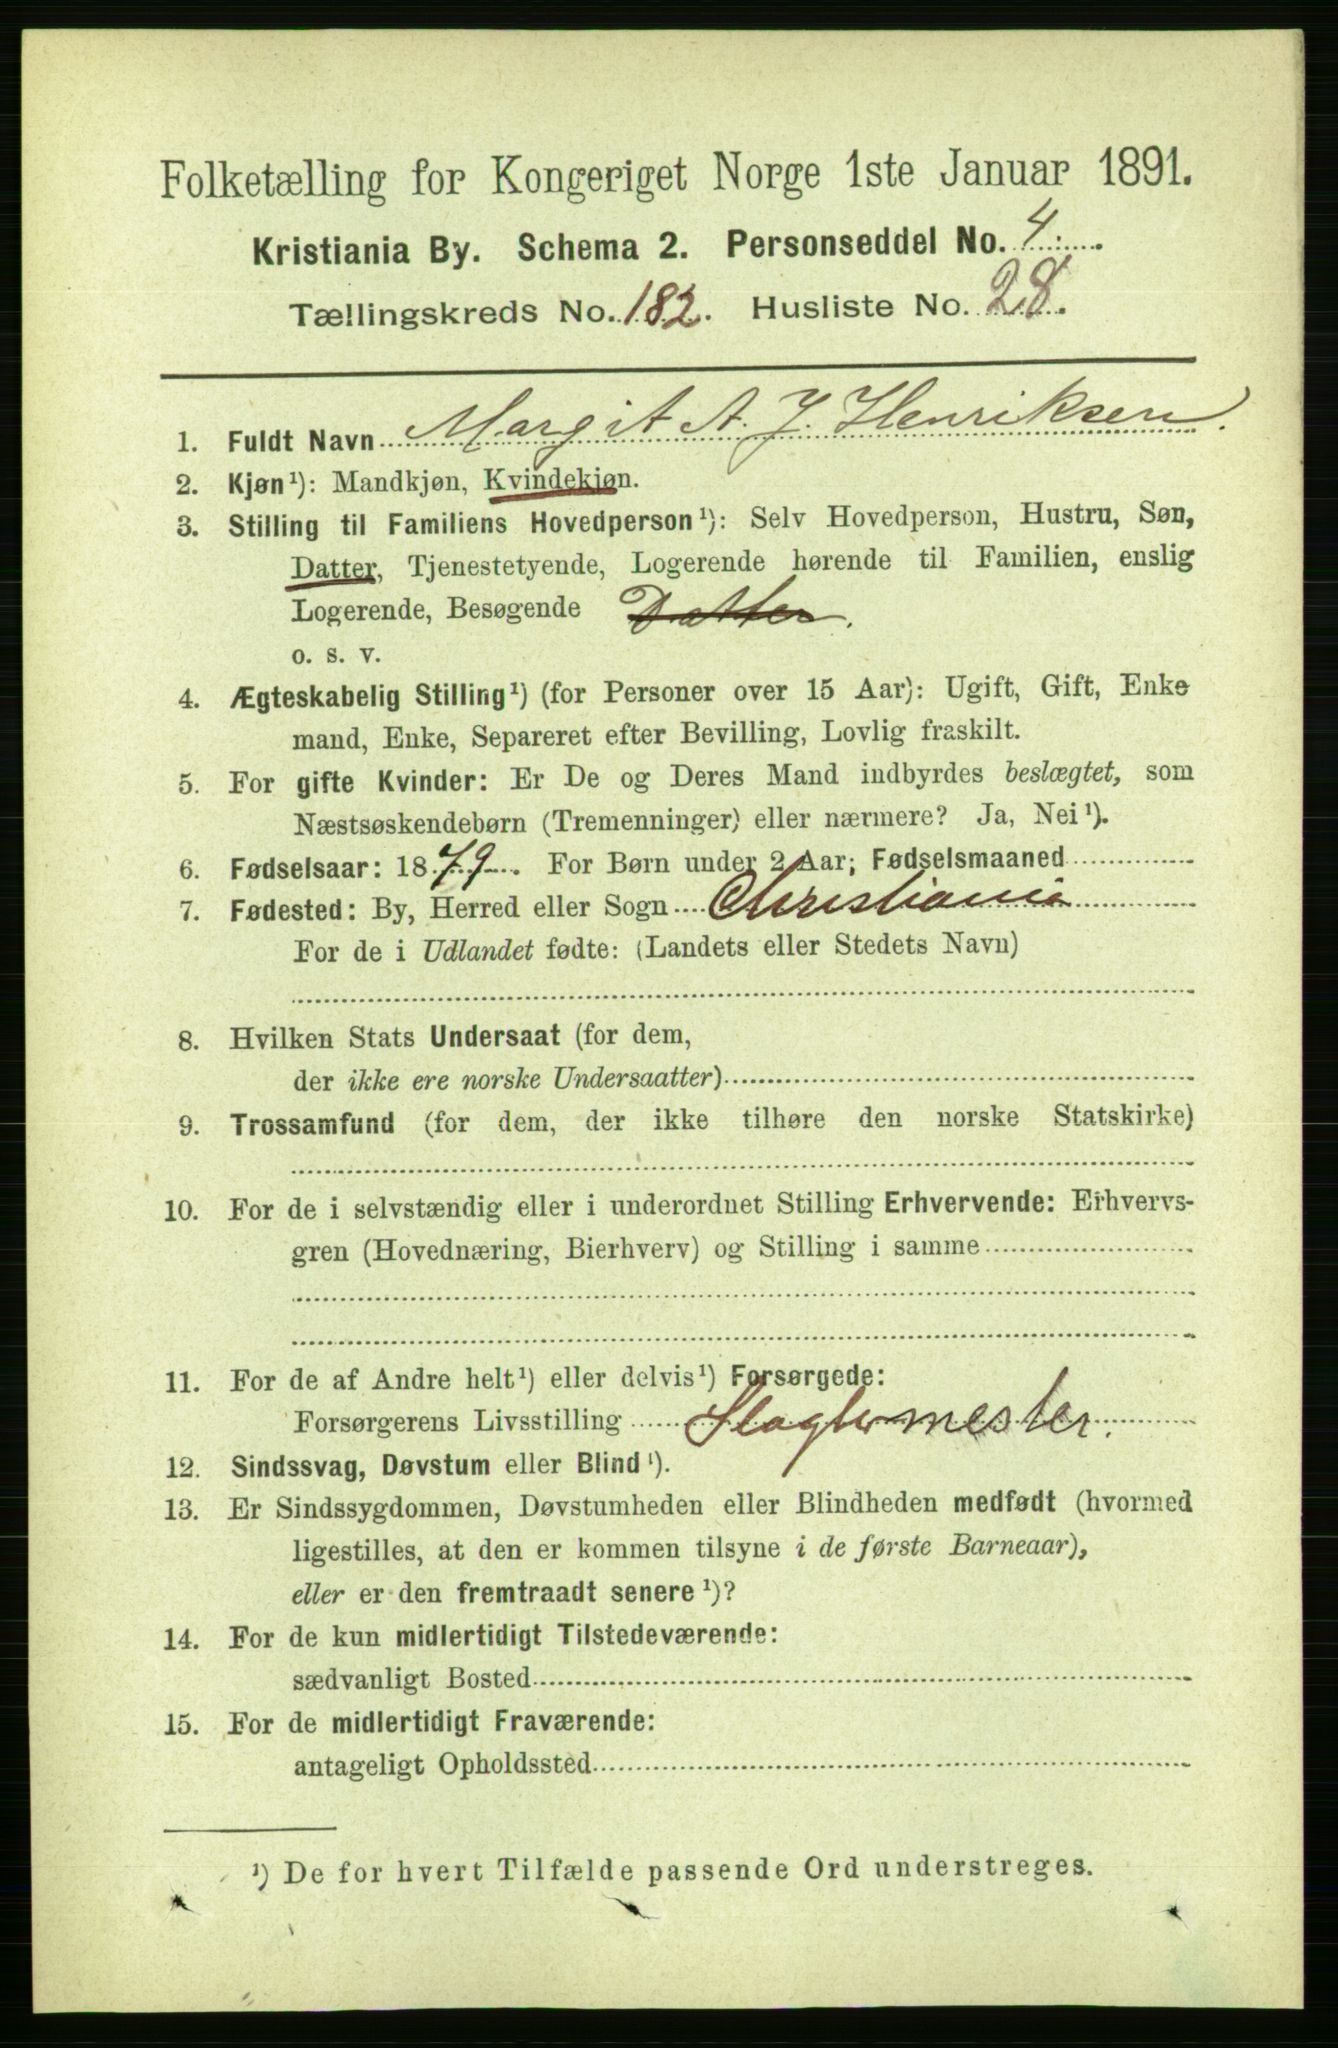 Folketælling for Kongeriget Norge 1ste Januar 1891.
Kristiania By. Schema 2. Personseddel No. 4.
Tællingskreds No. 182. Husliste No. 28.
1. Fuldt Navn Margit A. J. Henriksen.
2. Kjøn¹): Mandkjøn, Kvindekjøn.
3. Stilling til Familiens Hovedperson¹): Selv Hovedperson, Hustru, Søn,
Datter, Tjenestetyende, Logerende hørende til Familien, enslig
Logerende, Besøgende Datter.
o. s. v.
4. Ægteskabelig Stilling¹) (for Personer over 15 Aar): Ugift, Gift, Enke
mand, Enke, Separeret efter Bevilling, Lovlig fraskilt.
5. For gifte Kvinder: Er De og Deres Mand indbyrdes beslægtet, som
Næstsøskendebørn (Tremenninger) eller nærmere? Ja, Nei¹).
6. Fødselsaar: 1879. For Børn under 2 Aar; Fødselsmaaned
7. Fødested: By, Herred eller Sogn Christiania
For de i Udlandet fødte: (Landets eller Stedets Navn)
8. Hvilken Stats Undersaat (for dem,
der ikke ere norske Undersaatter)
9. Trossamfund (for dem, der ikke tilhøre den norske Statskirke)
10. For de i selvstændig eller i underordnet Stilling Erhvervende: Erhvervs-
gren (Hovednæring, Bierhverv) og Stilling i samme
11. For de af Andre helt¹) eller delvis¹) Forsørgede:
Forsørgerens Livsstilling Slagtermester.
12. Sindssvag, Døvstum eller Blind¹).
13. Er Sindssygdommen, Døvstumheden eller Blindheden medfødt (hvormed
ligestilles, at den er kommen tilsyne i de første Barneaar),
eller er den fremtraadt senere¹)?
14. For de kun midlertidigt Tilstedeværende:
sædvanligt Bosted
15. For de midlertidigt Fraværende:
antageligt Opholdssted
¹) De for hvert Tilfælde passende Ord understreges.